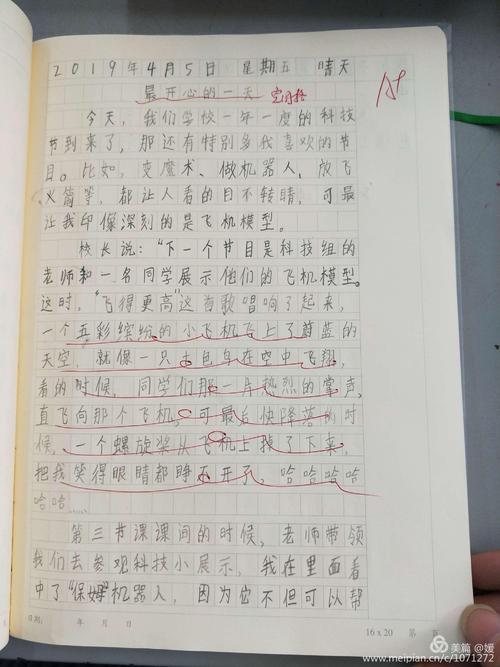 2019年4月5日 星期五 晴天
最开心的一天
今天,我们学校一年一度的科技
节到来了,那还有特别多我喜欢的节
目。比如,变魔术、做机器人,放飞
火箭等,都让人看的目不转睛,可最
让我印像深刻的是飞机模型。
校长说:“下一个节目是科技组的
老师和一名同学展示他们的飞机模型。
这时,“飞得更高”这首歌唱响了起来,
一个五彩缤纷的小飞机飞上了蔚蓝的
天空,就像一只 鸟在空中飞翔,
看的时候,同学们那一片热烈的掌声,
直飞向那个飞机,可最后快降落的时
候,一个螺旋桨从飞机上掉了下来,
把我笑得眼睛都睁不开了,哈哈哈哈
哈哈……
第三节课课间的时候,老师带领
我们去参观科技小展示,我在里面看
中了“保姆”机器人,因为它不但可以帮
日期: 年 月 日 16x20 第 页
美篇 @媛
www.meipian.cn/c/1071272